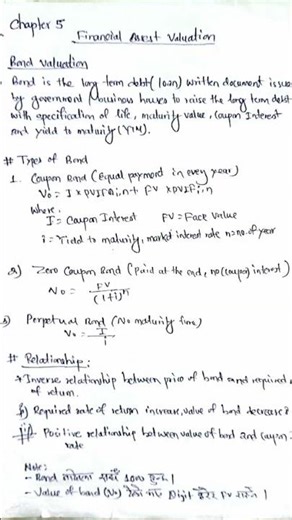 Chapter 5
Financial Asset Valuation
Bond Valuation
. Bond is the long term debt (loan) written document issue
by government / business houses to raise the long term debt
with specification of life, maturity value, Coupon Interest
and yield to maturity (YTM).
# Types of Bond
1. Coupon Bond (Equal payment in every year)
V₀ = I × PVIFAi,n + FV × PVIFi,n
Where,
I = Coupon Interest FV = Face value
i = Yield to maturity, market interest rate n = no. of year
2) Zero Coupon Bond (Paid at the end, no (coupon) interest)
V₀ = FV / (1+i)ⁿ
3) Perpetual Bond (No maturity time)
V₀ = I / i
# Relationship:
Inverse relationship between price of bond and required
of return.
Required rate of return increase, value of bond decrease
Positive relationship between value of bond and coupon
rate
Note:
- Bond 1000
- Value of bond (V₀) Digit FV